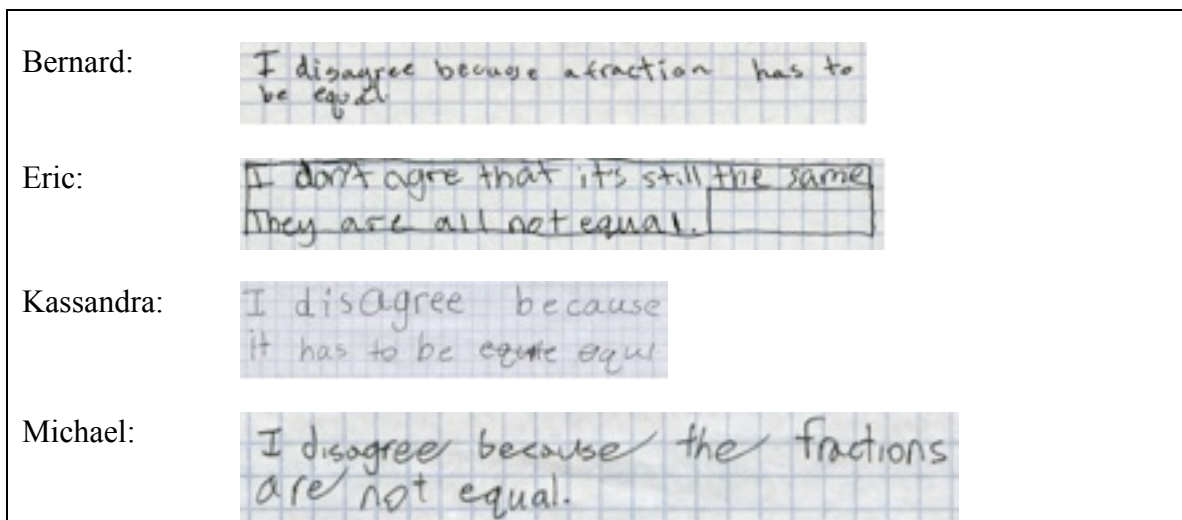 Bernard:
I disagree because a fraction has to
be equal
Eric:
I don't agre that it's still the same
They are all not equal.
Kassandra:
I disagree because
it has to be equi
Michael:
I disagree because the fractions
are not equal.